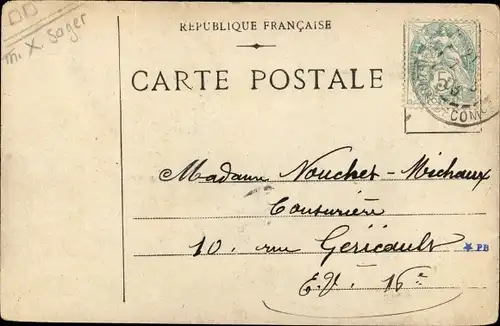 m. X. Sager
RÉPUBLIQUE FRANÇAISE
CARTE POSTALE
5
COM
Madame Nouchet-Michaux
Couturière
10. rue Géricault
E.V. 16e
PB